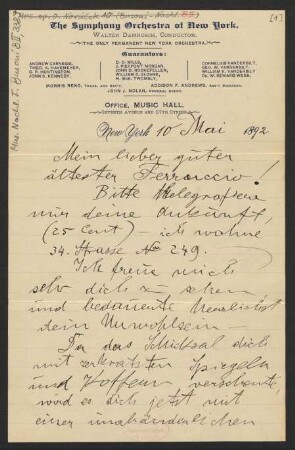 [1]
The Symphony Orchestra of New York.
WALTER DAMROSCH, CONDUCTOR.
THE ONLY PERMANENT NEW YORK ORCHESTRA.
Guarantors:
ANDREW CARNEGIE, D. O. MILLS, CORNELIUS VANDERBILT,
THEO. A. HAVEMEYER, J. PIERPONT MORGAN, GEO. W. VANDERBILT,
C. P. HUNTINGTON, JOHN D. ROCKEFELLER, WILLIAM K. VANDERBILT
JOHN S. KENNEDY, WILLIAM D. SLOANE, DR. W. SEWARD WEBB.
H. MCK. TWOMBLY,
MORRIS RENO, ADDISON F. ANDREWS,
JOHN J. NOLAN,
OFFICE, MUSIC HALL,
SEVENTH AVENUE AND 57TH STREET.
New York 10 Mai 1892
Mein lieber guter
ältester Ferruccio!
Bitte telegrafiere
mir deine Ankunft,
(25 Cent) – ich wohne
34. Strasse No 249.
Ich freue mich
sehr dich zu sehen
und bedauerte
dein Unwohlsein –
Da das Schicksal dich
mit zerkratzten Spiegeln
und Koffern verschonte,
wird es dich jetzt mit
einer unabänderlichen
Mus. Nachl. F. Busoni B II, 3387